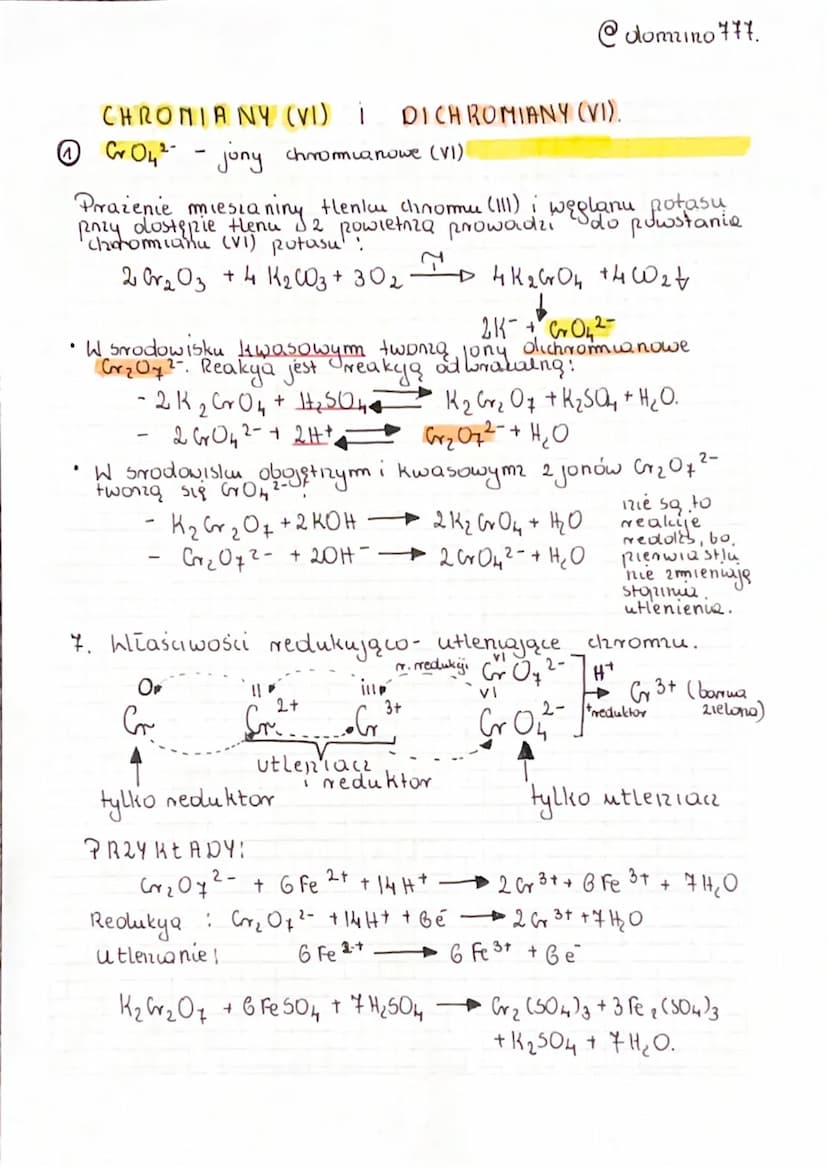 @domzino777.
CHROMIANY (VI) i DICHROMIANY (VI).
① CrO₄²⁻ - jony chromianowe (VI)
Prażenie mieszaniny tlenku chromu (III) i węglanu potasu
przy dostępie tlenu z powietrza prowadzi do powstania
chromianu (VI) potasu :
2 Cr₂O₃ + 4 K₂CO₃ + 3O₂ → 4 K₂CrO₄ + 4 CO₂↑
2K⁻ + CrO₄²⁻
• W środowisku kwasowym tworzą jony dichromianowe
Cr₂O₇²⁻. Reakcja jest reakcją odwracalną:
- 2 K₂CrO₄ + H₂SO₄ ⇄ K₂Cr₂O₇ + K₂SO₄ + H₂O.
- 2 CrO₄²⁻ + 2H⁺ ⇄ Cr₂O₇²⁻ + H₂O
• W środowisku obojętnym i kwasowym z jonów Cr₂O₇²⁻
tworzą się CrO₄²⁻:
- K₂Cr₂O₇ + 2 KOH → 2 K₂CrO₄ + H₂O
- Cr₂O₇²⁻ + 2OH⁻ → 2 CrO₄²⁻ + H₂O
nie są to
reakcje
redoks, bo
pierwiastki
nie zmieniają
stopnia
utlenienia.
7. Właściwości redukująco-utleniające chromu.
r. redukcji
0 II III VI
Cr Cr²⁺ Cr³⁺ CrO₇²⁻
VI
CrO₄²⁻
H⁺
+reduktor
Cr³⁺ (barwa
zielona)
utleniacz
i reduktor
tylko reduktor
tylko utleniacz
PRZYKŁADY:
Cr₂O₇²⁻ + 6 Fe²⁺ + 14 H⁺ → 2 Cr³⁺ + 6 Fe³⁺ + 7 H₂O
Redukcja : Cr₂O₇²⁻ + 14H⁺ + 6e⁻ → 2 Cr³⁺ + 7 H₂O
Utlenianie: 6 Fe²⁺ → 6 Fe³⁺ + 6e⁻
K₂Cr₂O₇ + 6 FeSO₄ + 7 H₂SO₄ → Cr₂(SO₄)₃ + 3 Fe₂(SO₄)₃
+ K₂SO₄ + 7 H₂O.